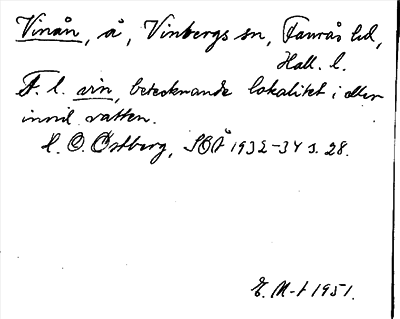 Vinån, å, Vinbergs sn, Faurås hd,
Hall. l.
F. l. vin, betecknande lokalitet i eller
invid vatten.
H. O. Östberg, SOÅ 1932-34 s. 28.
E. M-t 1951.